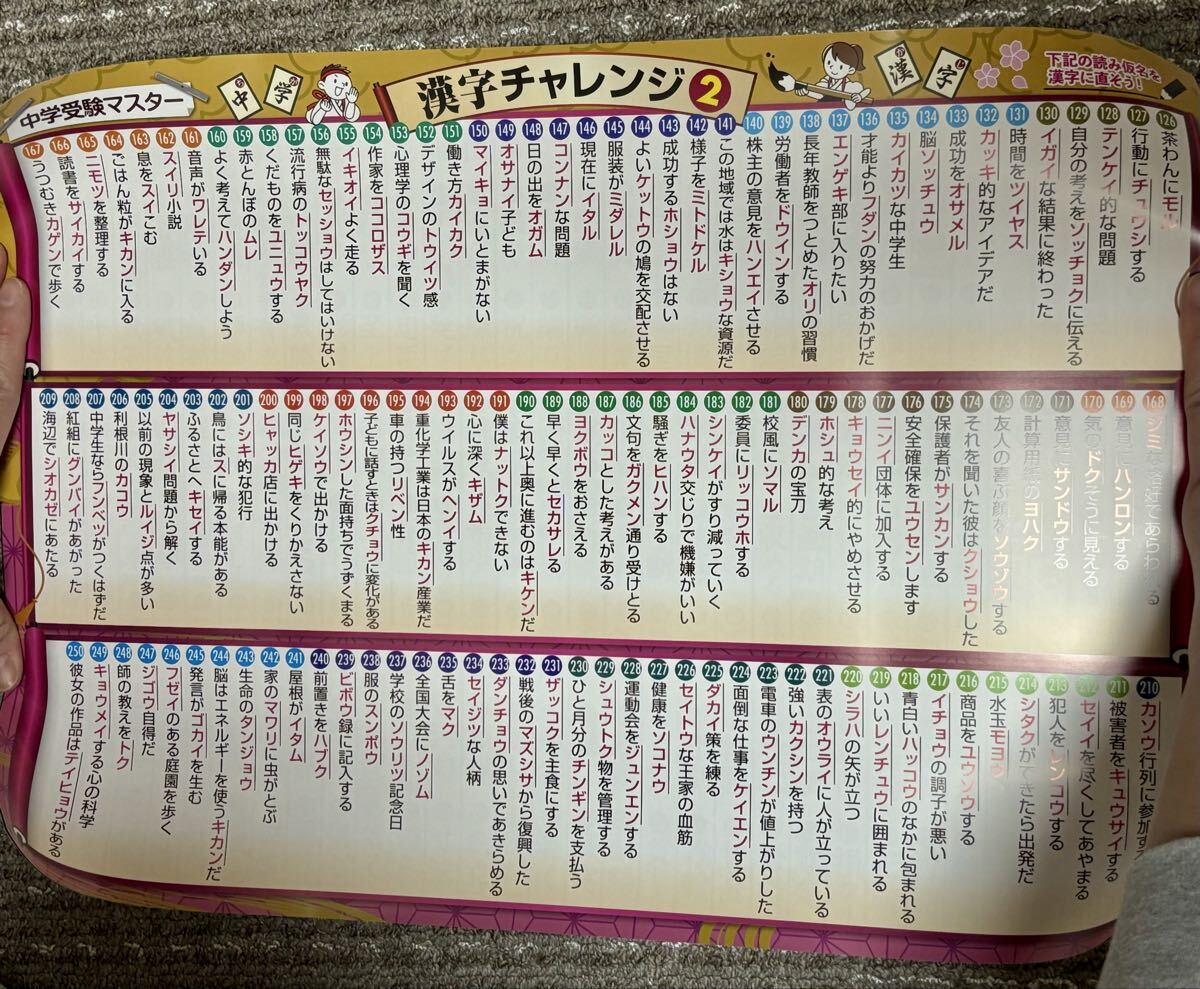 中学受験マスター
中学の
漢字チャレンジ2
漢字
下記の読み仮名を
漢字に直そう!
126 茶わんにモル
127 行動にチュウシする
128 テンケイ的な問題
129 自分の考えをソッチョクに伝える
130 イガイな結果に終わった
131 時間をツイヤス
132 カッキ的なアイデアだ
133 成功をオサメル
134 脳ソッチュウ
135 カイカツな中学生
136 才能よりフダンの努力のおかげだ
137 エンゲキ部に入りたい
138 長年教師をつとめたオリの習慣
139 労働者をドウインする
140 株主の意見をハンエイさせる
141 この地域では水はキショウな資源だ
142 様子をミトドケル
143 成功するホショウはない
144 よいケットウの鳩を交配させる
145 服装がミダレル
146 現在にイタル
147 コンナンな問題
148 日の出をオガム
149 オサナイ子ども
150 マイキョにいとまがない
151 働き方カイカク
152 デザインのトウイツ感
153 心理学のコウギを聞く
154 作家をココロザス
155 イキオイよく走る
156 無駄なセッショウはしてはいけない
157 流行病のトッコウヤク
158 くだものをユニュウする
159 赤とんぼのムレ
160 よく考えてハンダンしよう
161 音声がワレテいる
162 スイリ小説
163 息をスイこむ
164 ごはん粒がキカンに入る
165 ニモツを整理する
166 読書をサイカイする
167 うつむきカゲンで歩く
168 ジミな
169 意見にハンロンする
170 気のドクそうに見える
171 意見にサンドウする
172 計算用紙のヨハク
173 友人の喜ぶ顔をソウゾウする
174 それを聞いた彼はクショウした
175 保護者がサンカンする
176 安全確保をユウセンします
177 ニンイ団体に加入する
178 キョウセイ的にやめさせる
179 ホシュ的な考え
180 デンカの宝刀
181 校風にソマル
182 委員にリッコウホする
183 シンケイがすり減っていく
184 ハナウタ交じりで機嫌がいい
185 騒ぎをヒハンする
186 文句をガクメン通り受けとる
187 カッコとした考えがある
188 ヨクボウをおさえる
189 早く早くとセカサレる
190 これ以上奥に進むのはキケンだ
191 僕はナットクできない
192 心に深くキザム
193 ウイルスがヘンイする
194 重化学工業は日本のキカン産業だ
195 車の持つリベン性
196 子どもに話すときはクチョウに変化がある
197 ホウシンした面持ちでうずくまる
198 ケイソウで出かける
199 同じヒゲキをくりかえさない
200 ヒャッカ店に出かける
201 ソシキ的な犯行
202 鳥にはスに帰る本能がある
203 ふるさとへキセイする
204 ヤサシイ問題から解く
205 以前の現象とルイジ点が多い
206 利根川のカコウ
207 中学生ならフンベツがつくはずだ
208 紅組にグンバイがあがった
209 海辺でシオカゼにあたる
210 カソウ行列に参加す
211 被害者をキュウサイする
212 セイイを尽くしてあやまる
213 犯人をレンコウする
214 シタクができたら出発だ
215 水玉モヨウ
216 商品をユウソウする
217 イチョウの調子が悪い
218 青白いハッコウのなかに包まれる
219 いいレンチュウに囲まれる
220 シラハの矢が立つ
221 表のオウライに人が立っている
222 強いカクシンを持つ
223 電車のウンチンが値上がりした
224 面倒な仕事をケイエンする
225 ダカイ策を練る
226 セイトウな王家の血筋
227 健康をソコナウ
228 運動会をジュンエンする
229 シュウトク物を管理する
230 ひと月分のチンギンを支払う
231 ザッコクを主食にする
232 戦後のマズシサから復興した
233 ダンチョウの思いであきらめる
234 セイジツな人柄
235 舌をマク
236 全国大会にノゾム
237 学校のソウリツ記念日
238 服のスンポウ
239 ビボウ録に記入する
240 前置きをハブク
241 屋根がイタム
242 家のマワリに虫がとぶ
243 生命のタンジョウ
244 脳はエネルギーを使うキカンだ
245 発言がゴカイを生む
246 フゼイのある庭園を歩く
247 ジゴウ自得だ
248 師の教えをトク
249 キョウメイする心の科学
250 彼女の作品はテイヒョウがある